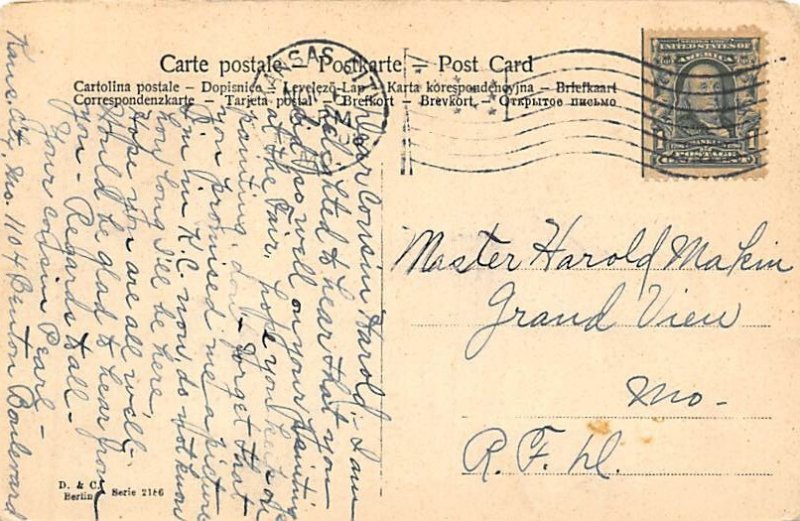 Carte postale – Postkarte – Post Card
Cartolina postale – Dopisnice – Levelező-Lap – Karta korespondencyjna – Briefkaart
Correspondenzkarte – Tarjeta postal – Brefkort – Brevkort – Открытое письмо
UNITED STATES OF
AMERICA
FRANKLIN
POSTAGE
Dear Cousin Harold:- I am
delighted to hear that you
did so well on your painting
at the Fair. hope you keep on
painting. Don't forget that
you promised me a picture
I'm in K.C. now, do not know
how long I'll be here,
Hope you are all well-
Would be glad to hear from
you- Regards to all-
Your cousin Pearl-
Kans. City, Mo. 1104 Benton Boulevard
Master Harold Makin
Grand View
Mo-
R. F. D.
D. & C.
Berlin
Serie 2186